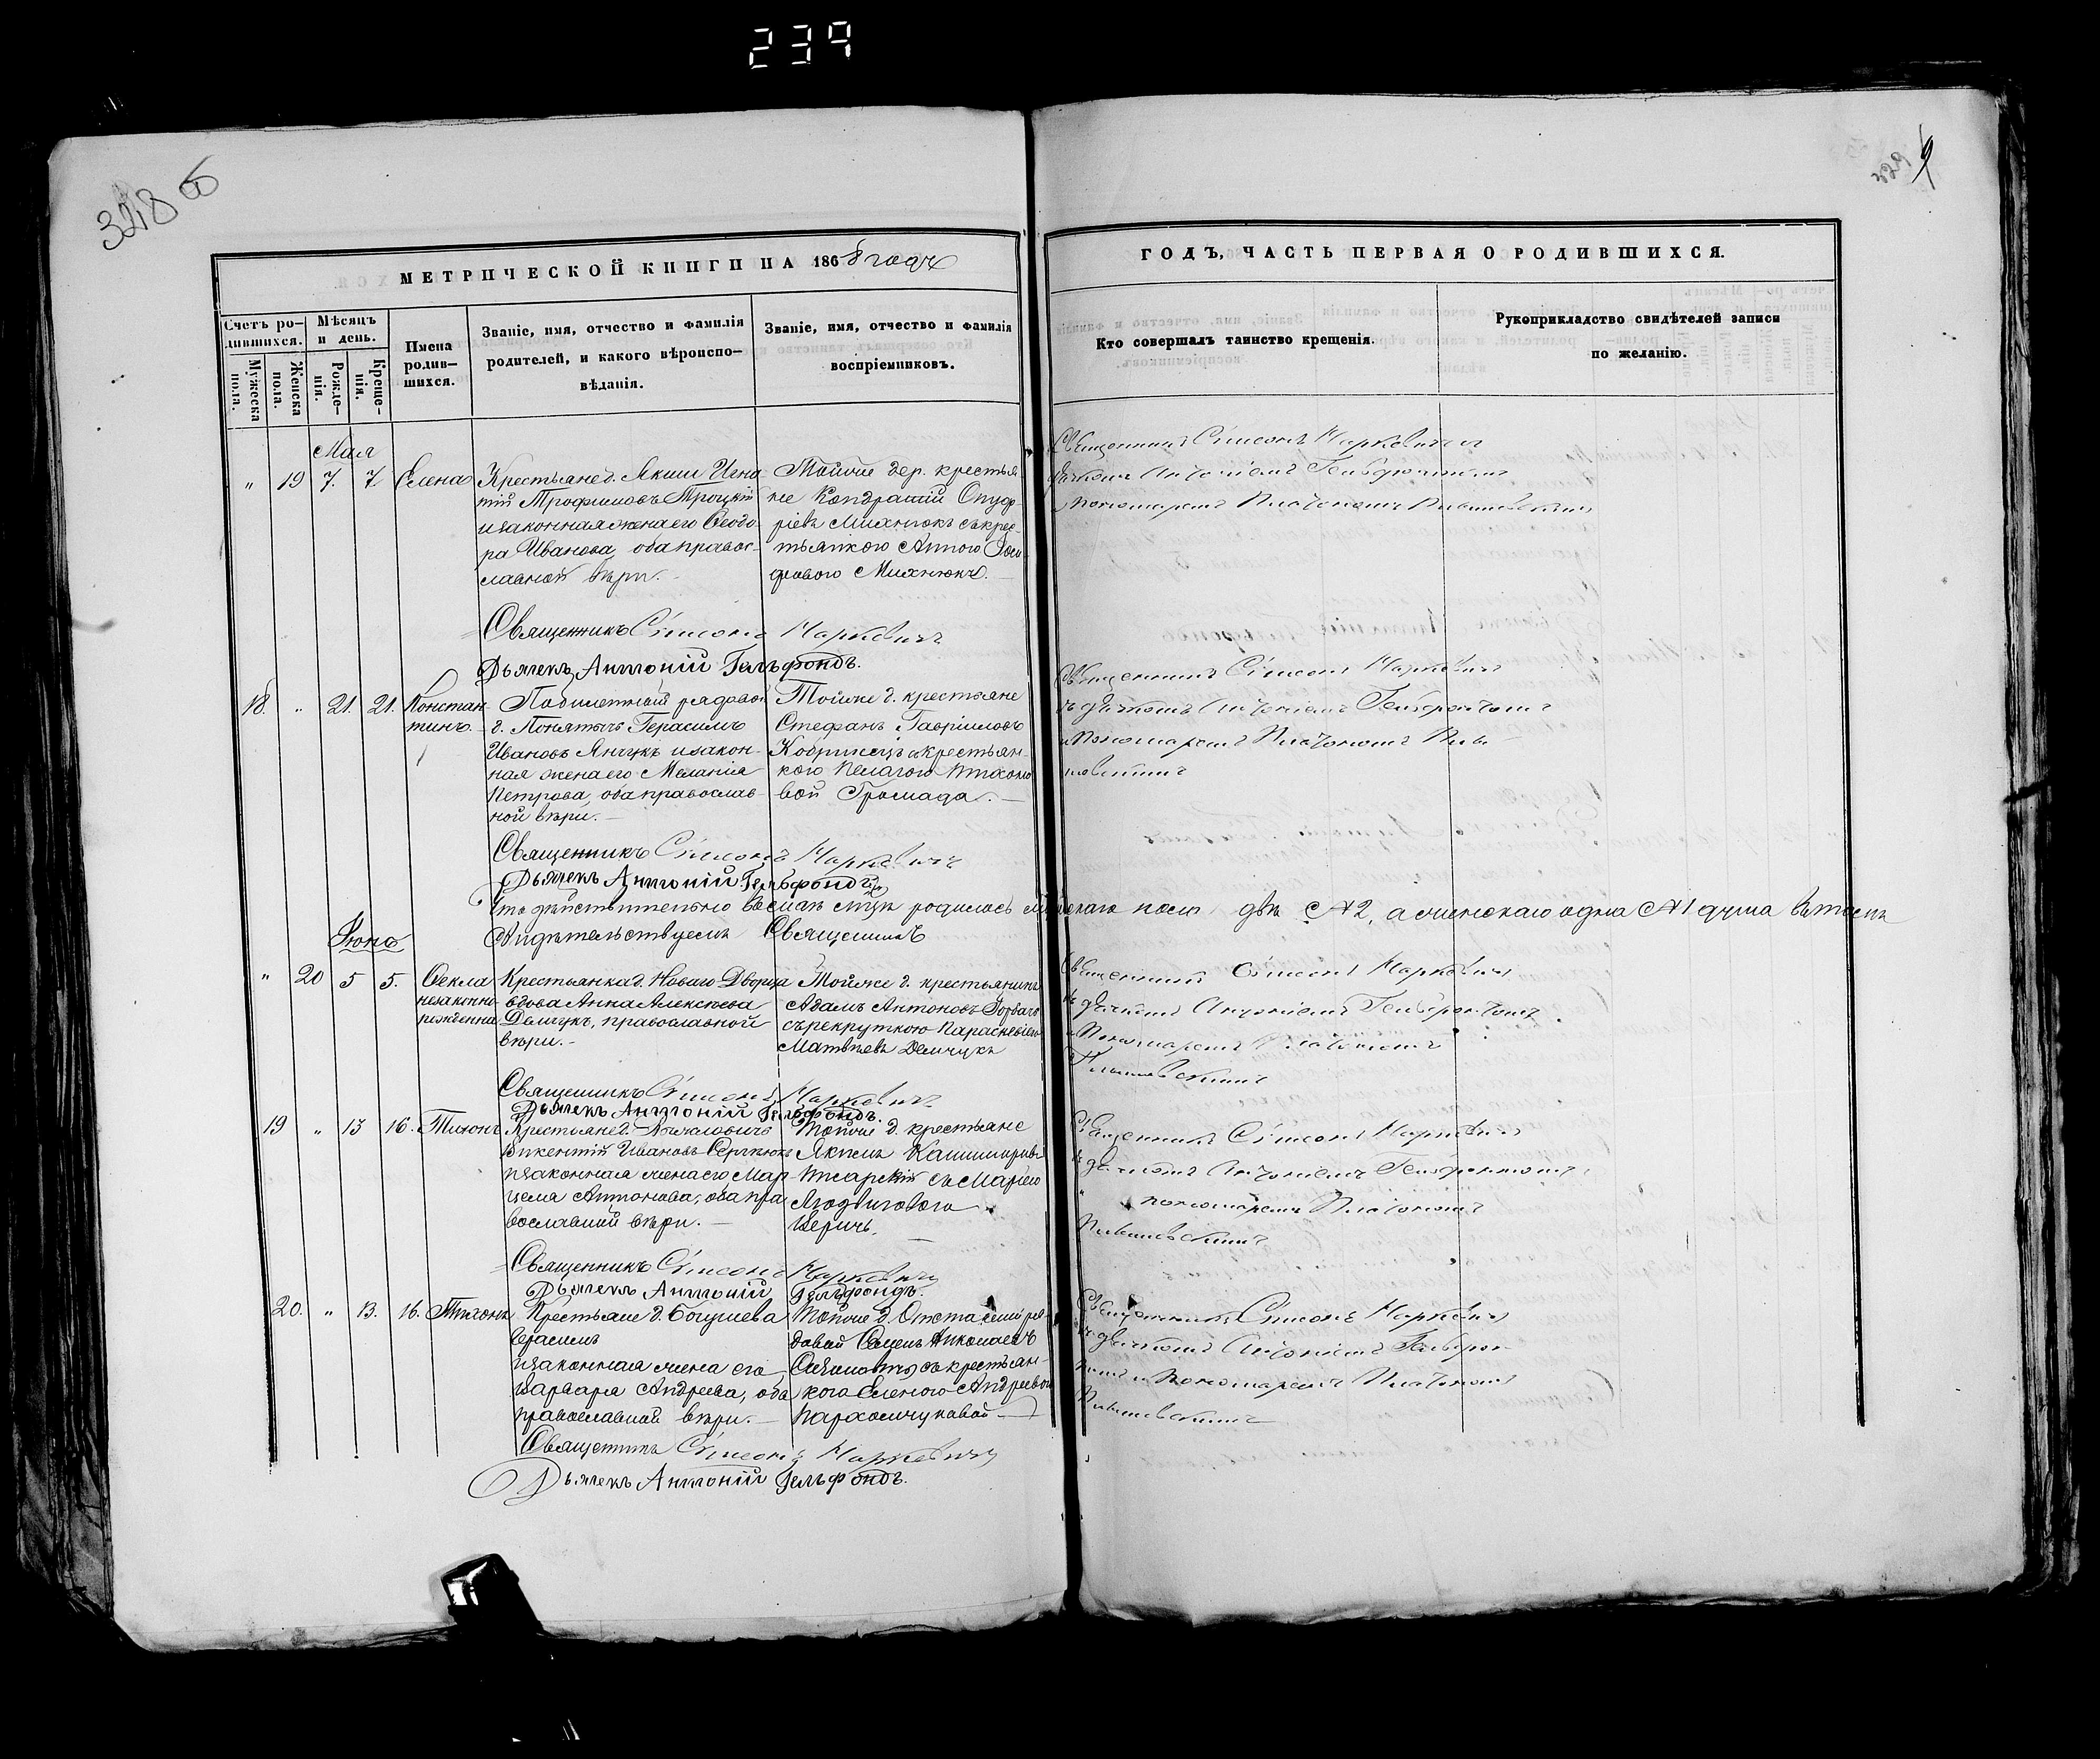 239
328 об
329
9
МЕТРИЧЕСКОЙ КНИГИ НА 1868 годъ
Счетъ ро-
дившихся.
Мужеска
пола.
Женска
пола.
Мѣсяцъ
и день.
Рожде-
нія.
Креще-
нія.
Имена
родив-
шихся.
Званіе, имя, отчество и фамилія
родителей, и какого вѣроиспо-
вѣданія.
Званіе, имя, отчество и фамилія
воспріемниковъ.
Мая
„ 19 7. 7 Елена
Крестьяне д. Якши Игна-
тій Трофимовъ Троцкій
и законная жена его Ѳеодо-
ра Иванова, оба правос-
лавной вѣры.
Тойже дер. крестья-
не Кондратій Онуф-
ріевъ Михнюкъ съ крес-
тьянкою Анною Іоси-
фовою Михнюкъ.
Священникъ Сѵмеонъ Маркевичъ
Дьячекъ Антоній Гельфондъ.
18. „ 21. 21. Констан-
тинъ.
рядовой
д. Герасимъ
Ивановъ Янчукъ и закон-
ная жена его Меланія
Петрова, оба православ-
ной вѣры.
Тойже д. крестьяне
Стефанъ Гавріиловъ
Кобринецъ съ крестьян-
кою Пелагею
вой Громада.
Священникъ Сѵмеонъ Маркевичъ
Дьячекъ Антоній Гельфондъ
Что дѣйствительно въ маѣ м-цѣ родилось мужескаго пола двѣ №2, а женскаго одна №1 душа въ томъ
Свидѣтельствуемъ Священникъ
Іюнь
„ 20 5 5. Ѳекла
незаконно-
рожденна
Крестьянка д. Новаго Дворца
вдова Анна Алексѣева
Демчукъ, православной
вѣры.
Тойже д. крестьянинъ
Адамъ Антоновъ Горбачъ
съ рекруткою Параскевіею
Матвѣевъ Демчукъ
Священникъ Сѵмеонъ Маркевичъ
Дьячекъ Антоній Гельфондъ.
19 „ 13 16. Тихонъ
Крестьяне д.
Викентій Ивановъ
и законная жена его Мар-
цела Антонова, оба пра-
вославной вѣры.
Тойже д. крестьяне
Якимъ
съ Маріею
Людвиговою
Верича.
Священникъ Сѵмеонъ Маркевичъ
Дьячекъ Антоній Гельфондъ.
20. „ 13. 16. Тихонъ
Крестьяне д. Богушева
Герасимъ
и законная жена его
Варвара Андреева, оба
православной вѣры.
Тойже д. Отставной ря-
довой Семенъ Николаевъ
съ крестьян-
кою Еленою Андреевой
Пархомчуковой
Священникъ Сѵмеонъ Маркевичъ
Дьячекъ Антоній Гельфондъ.
ГОДЪ, ЧАСТЬ ПЕРВАЯ О РОДИВШИХСЯ.
Кто совершалъ таинство крещенія.
Рукоприкладство свидѣтелей записи
по желанію.
Священникъ Сѵмеонъ Маркевичъ съ
дьячкомъ Антоніемъ Гельфондомъ
и пономаремъ Платономъ
Священникъ Сѵмеонъ Маркевичъ
съ дьячкомъ Антоніемъ Гельфондомъ
и Пономаремъ Платономъ
Священникъ Сѵмеонъ Маркевичъ
съ дьячкомъ Антоніемъ Гельфондомъ
и Пономаремъ Платономъ
Священникъ Сѵмеонъ Маркевичъ
съ дьячкомъ Антоніемъ Гельфондомъ
и пономаремъ Платономъ
Священникъ Сѵмеонъ Маркевичъ
съ дьячкомъ Антоніемъ Гельфон-
домъ и Пономаремъ Платономъ